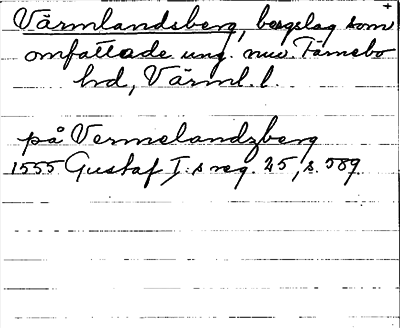 Värmlandsberg, bergslag som
omfattade ung. nuv. Färnebo
hd, Värml. l.
på Vermelandzberg
1555 Gustaf I:s reg. 25, s. 589